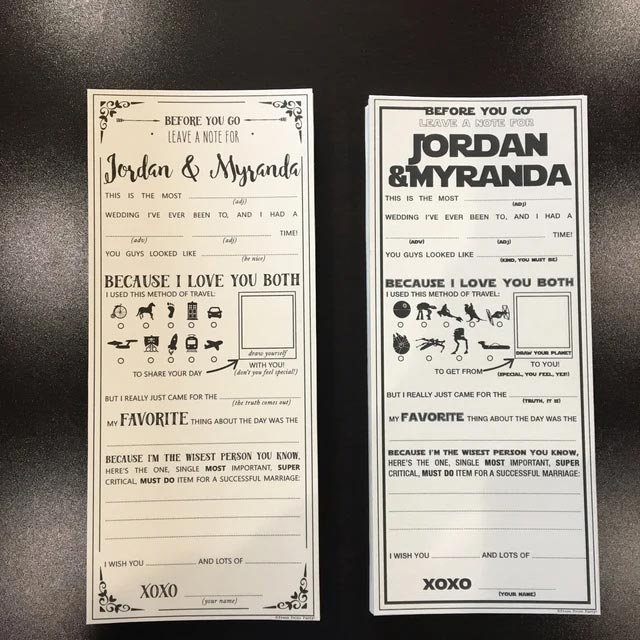 BEFORE YOU GO
LEAVE A NOTE FOR
Jordan & Myranda
THIS IS THE MOST
(adj)
WEDDING I'VE EVER BEEN TO, AND I HAD A
TIME!
(adv) (adj)
YOU GUYS LOOKED LIKE
(be nice)
BECAUSE I LOVE YOU BOTH
I USED THIS METHOD OF TRAVEL:
draw yourself
WITH YOU!
TO SHARE YOUR DAY
(don't you feel special?)
BUT I REALLY JUST CAME FOR THE
(the truth comes out)
MY FAVORITE THING ABOUT THE DAY WAS THE
BECAUSE I'M THE WISEST PERSON YOU KNOW,
HERE'S THE ONE, SINGLE MOST IMPORTANT, SUPER
CRITICAL, MUST DO ITEM FOR A SUCCESSFUL MARRIAGE:
I WISH YOU AND LOTS OF
XOXO
(your name)
BEFORE YOU GO
LEAVE A NOTE FOR
JORDAN
&MYRANDA
THIS IS THE MOST
(ADJ)
WEDDING I'VE EVER BEEN TO, AND I HAD A
TIME!
(ADV) (ADJ)
YOU GUYS LOOKED LIKE
(KIND, YOU MUST BE)
BECAUSE I LOVE YOU BOTH
I USED THIS METHOD OF TRAVEL:
DRAW YOUR PLANET
TO YOU!
TO GET FROM
(SPECIAL, YOU FEEL, YES?)
BUT I REALLY JUST CAME FOR THE
(TRUTH, IT IS)
MY FAVORITE THING ABOUT THE DAY WAS THE
BECAUSE I'M THE WISEST PERSON YOU KNOW,
HERE'S THE ONE, SINGLE MOST IMPORTANT, SUPER
CRITICAL, MUST DO ITEM FOR A SUCCESSFUL MARRIAGE:
I WISH YOU AND LOTS OF
XOXO
(YOUR NAME)